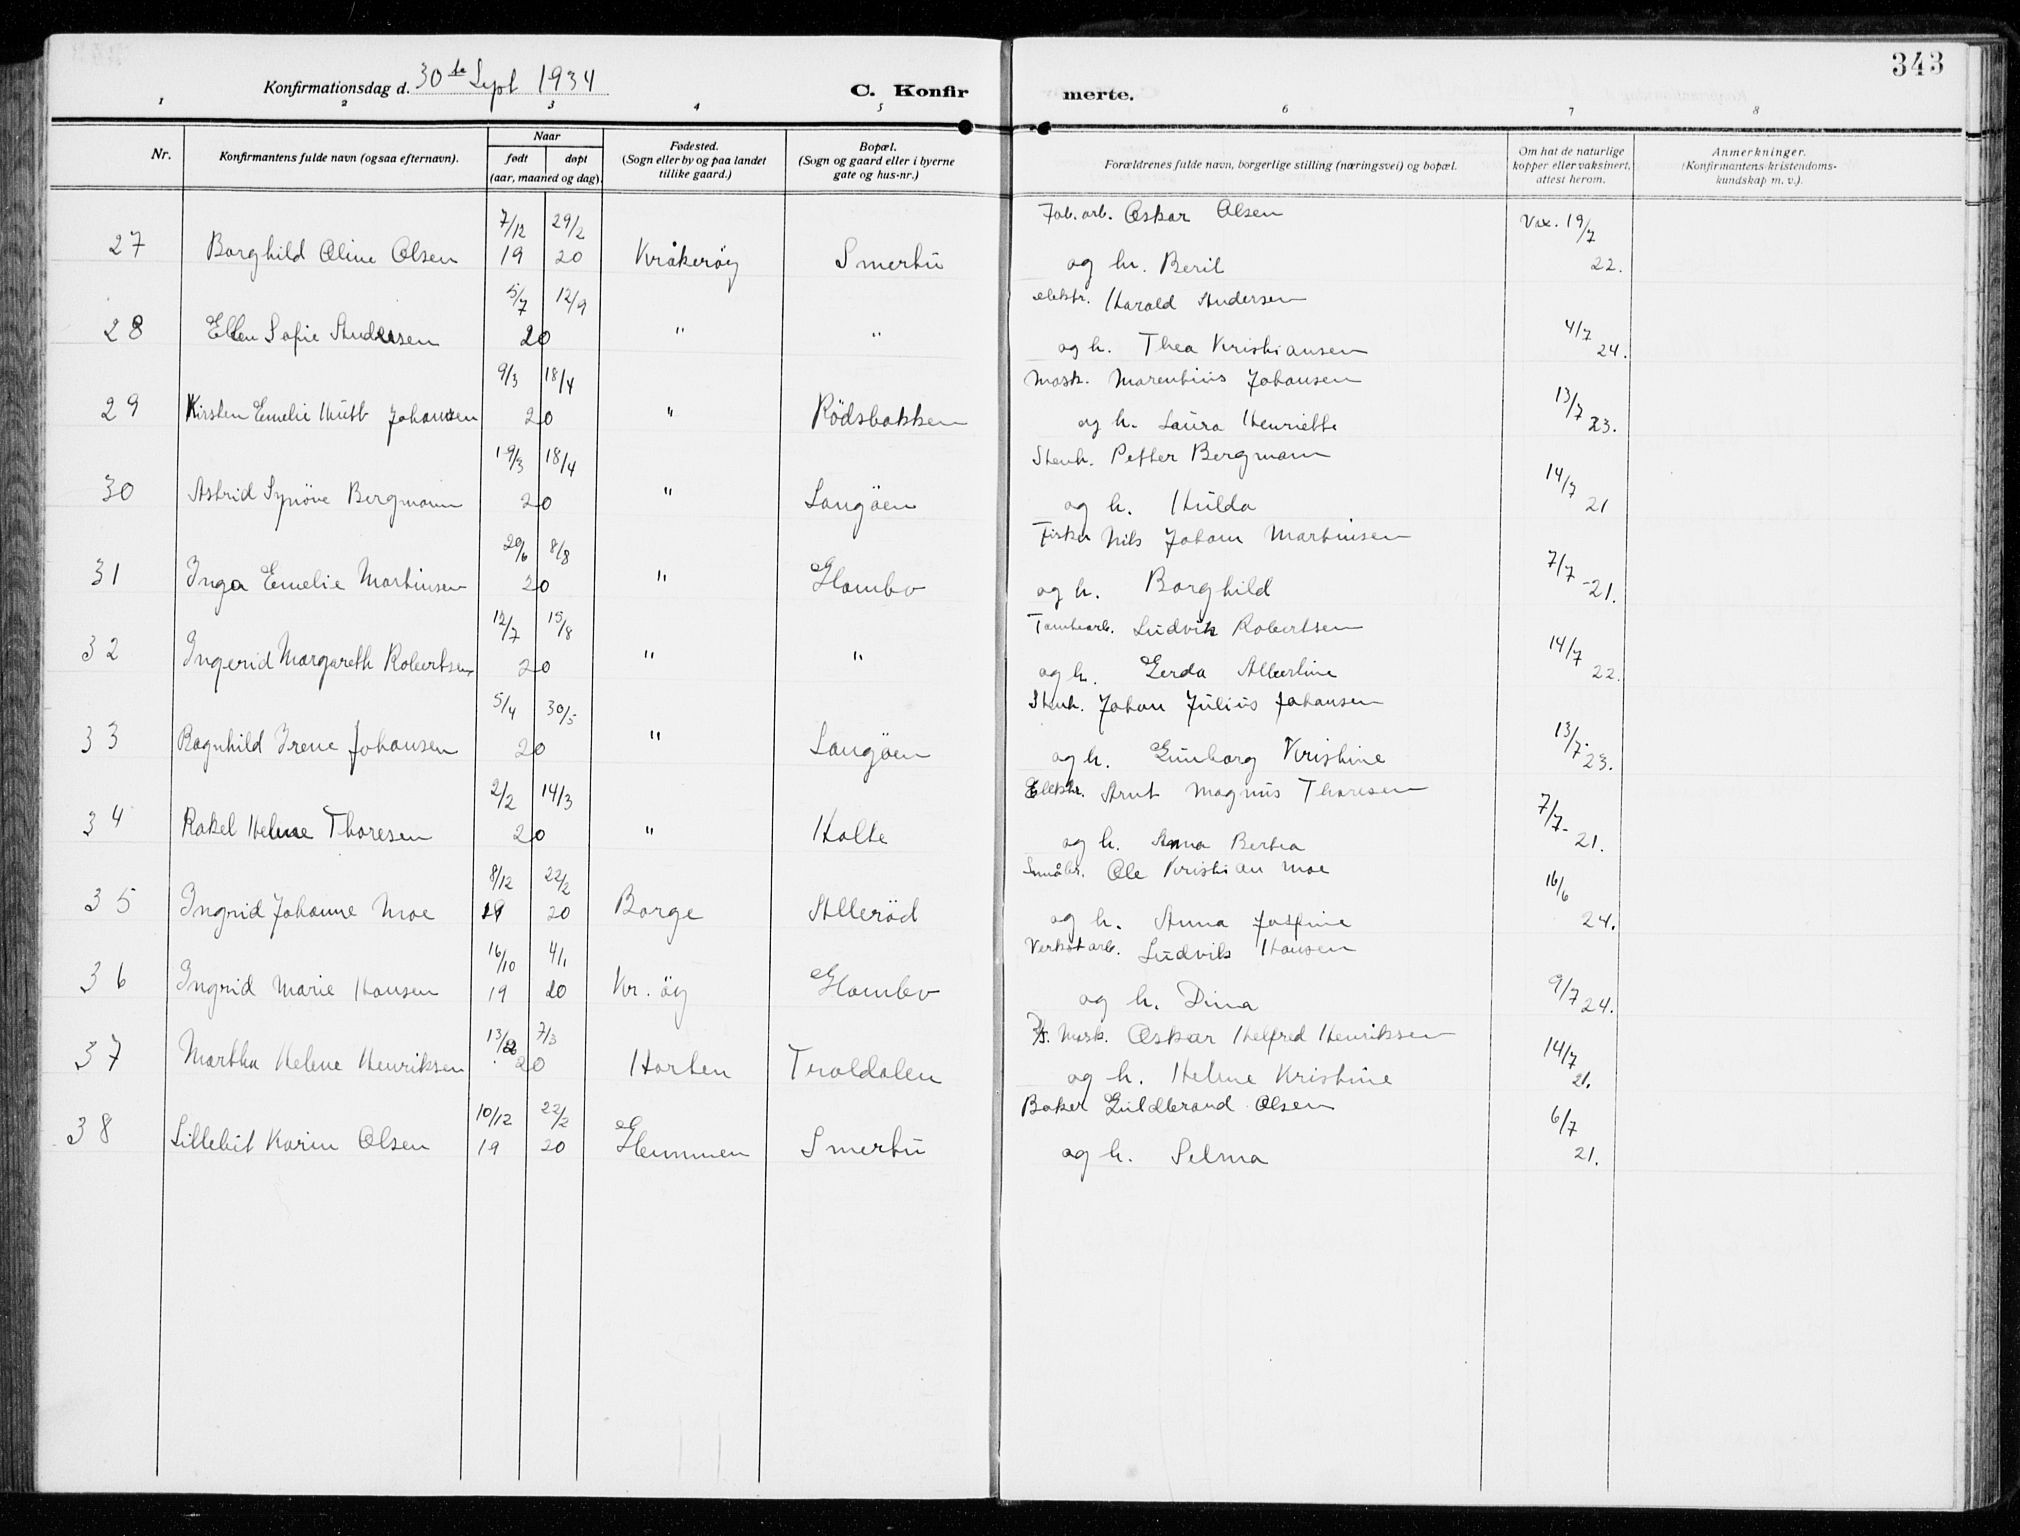 343
Konfirmationsdag d. 30te Sept 1934
C. Konfirmerte.
1 2 3 4 5 6 7 8
Nr.
Konfirmantens fulde navn (ogsaa efternavn).
Naar
født
døpt
(aar, maaned og dag).
Fødested.
(Sogn eller by og paa landet
tillike gaard.)
Bopæl.
(Sogn og gaard eller i byerne
gate og hus-nr.)
Forældrenes fulde navn, borgerlige stilling (næringsvei) og bopæl.
Om hat de naturlige
kopper eller vaksinert,
attest herom.
Anmerkninger.
(Konfirmantens kristendoms-
kundskap m. v.).
7/12 29/2 Fab. arb. Oskar Olsen Vax. 19/7
27 Borghild Oline Olsen 19 20 Kråkerøy Smertu og h. Beril 22.
5/7 12/9 elektr. Harald Andersen
28 Ellen Sofie Andersen 20 " " og h. Thea Kristiansen 4/7 24.
9/3 18/4 Mask. Marentius Johansen
29 Kirsten Emelie Hutt Johansen 20 " Rödsbakken og h. Laura Henriette 13/7 23.
19/3 18/4 Stenh. Petter Bergmann
30 Astrid Synöve Bergmann 20 " Langöen og h. Hulda 14/7 21
20/6 8/8 Fisker Nils Johan Martinsen
31 Inga Emelie Martinsen 20 " Glombo og h. Borghild 7/7 - 21.
12/7 15/8 Tomtearb. Ludvik Robertsen
32 Ingerid Margareth Robertsen 20 " " og h. Gerda Albertine 14/7 22.
5/4 30/5 Stenh. Johan Julius Johansen
33 Ragnhild Irene Johansen 20 " Langöen og h. Gunborg Kristine 13/7. 23.
2/2 14/3 Elektr. Arnt Magnus Thoresen
34 Rakel Helene Thoresen 20 " Holte og h. Anna Bertea 7/7- 21.
8/12 22/2 Småbr. Ole Kristian Moe
35 Ingrid Johanne Moe 19 20 Borge Alleröd og h. Anna Josfine 16/6 24.
16/10 4/1 Verkstarb. Ludvik Hansen
36 Ingrid Marie Hansen 19 20 Kr. öy Glombo og h. Dina 9/7 24.
7/3 Mask. Oskar Helfred Henriksen
37 Martha Helene Henriksen 20 Horten Troldalen og h. Helene Kristine 14/7 21.
10/12 22/2 Baker Guldbrand Olsen
38 Lillebit Karin Olsen 19 20 Glemmen Smertu og h. Selma 6/7 21.